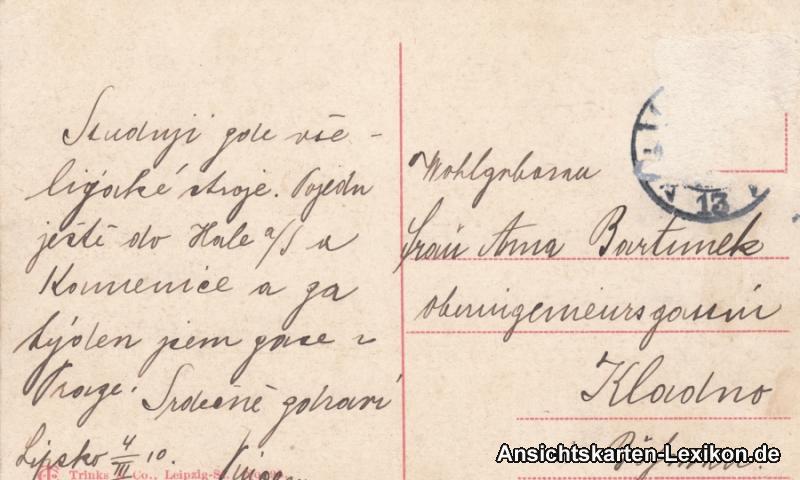 Studuji zde vše-
lijaké stroje. Pojedu
ještě do Hale a/S a
Kamenice a za
týden jsem zase v
Praze. Srdečně zdraví
Lipsko 4/III 10.
Trinks Co., Leipzig
Wohlgeboren
Frau Anna Bartunek
Oberingenieursgattin
Kladno
Böhmen.
13
Ansichtskarten-Lexikon.de